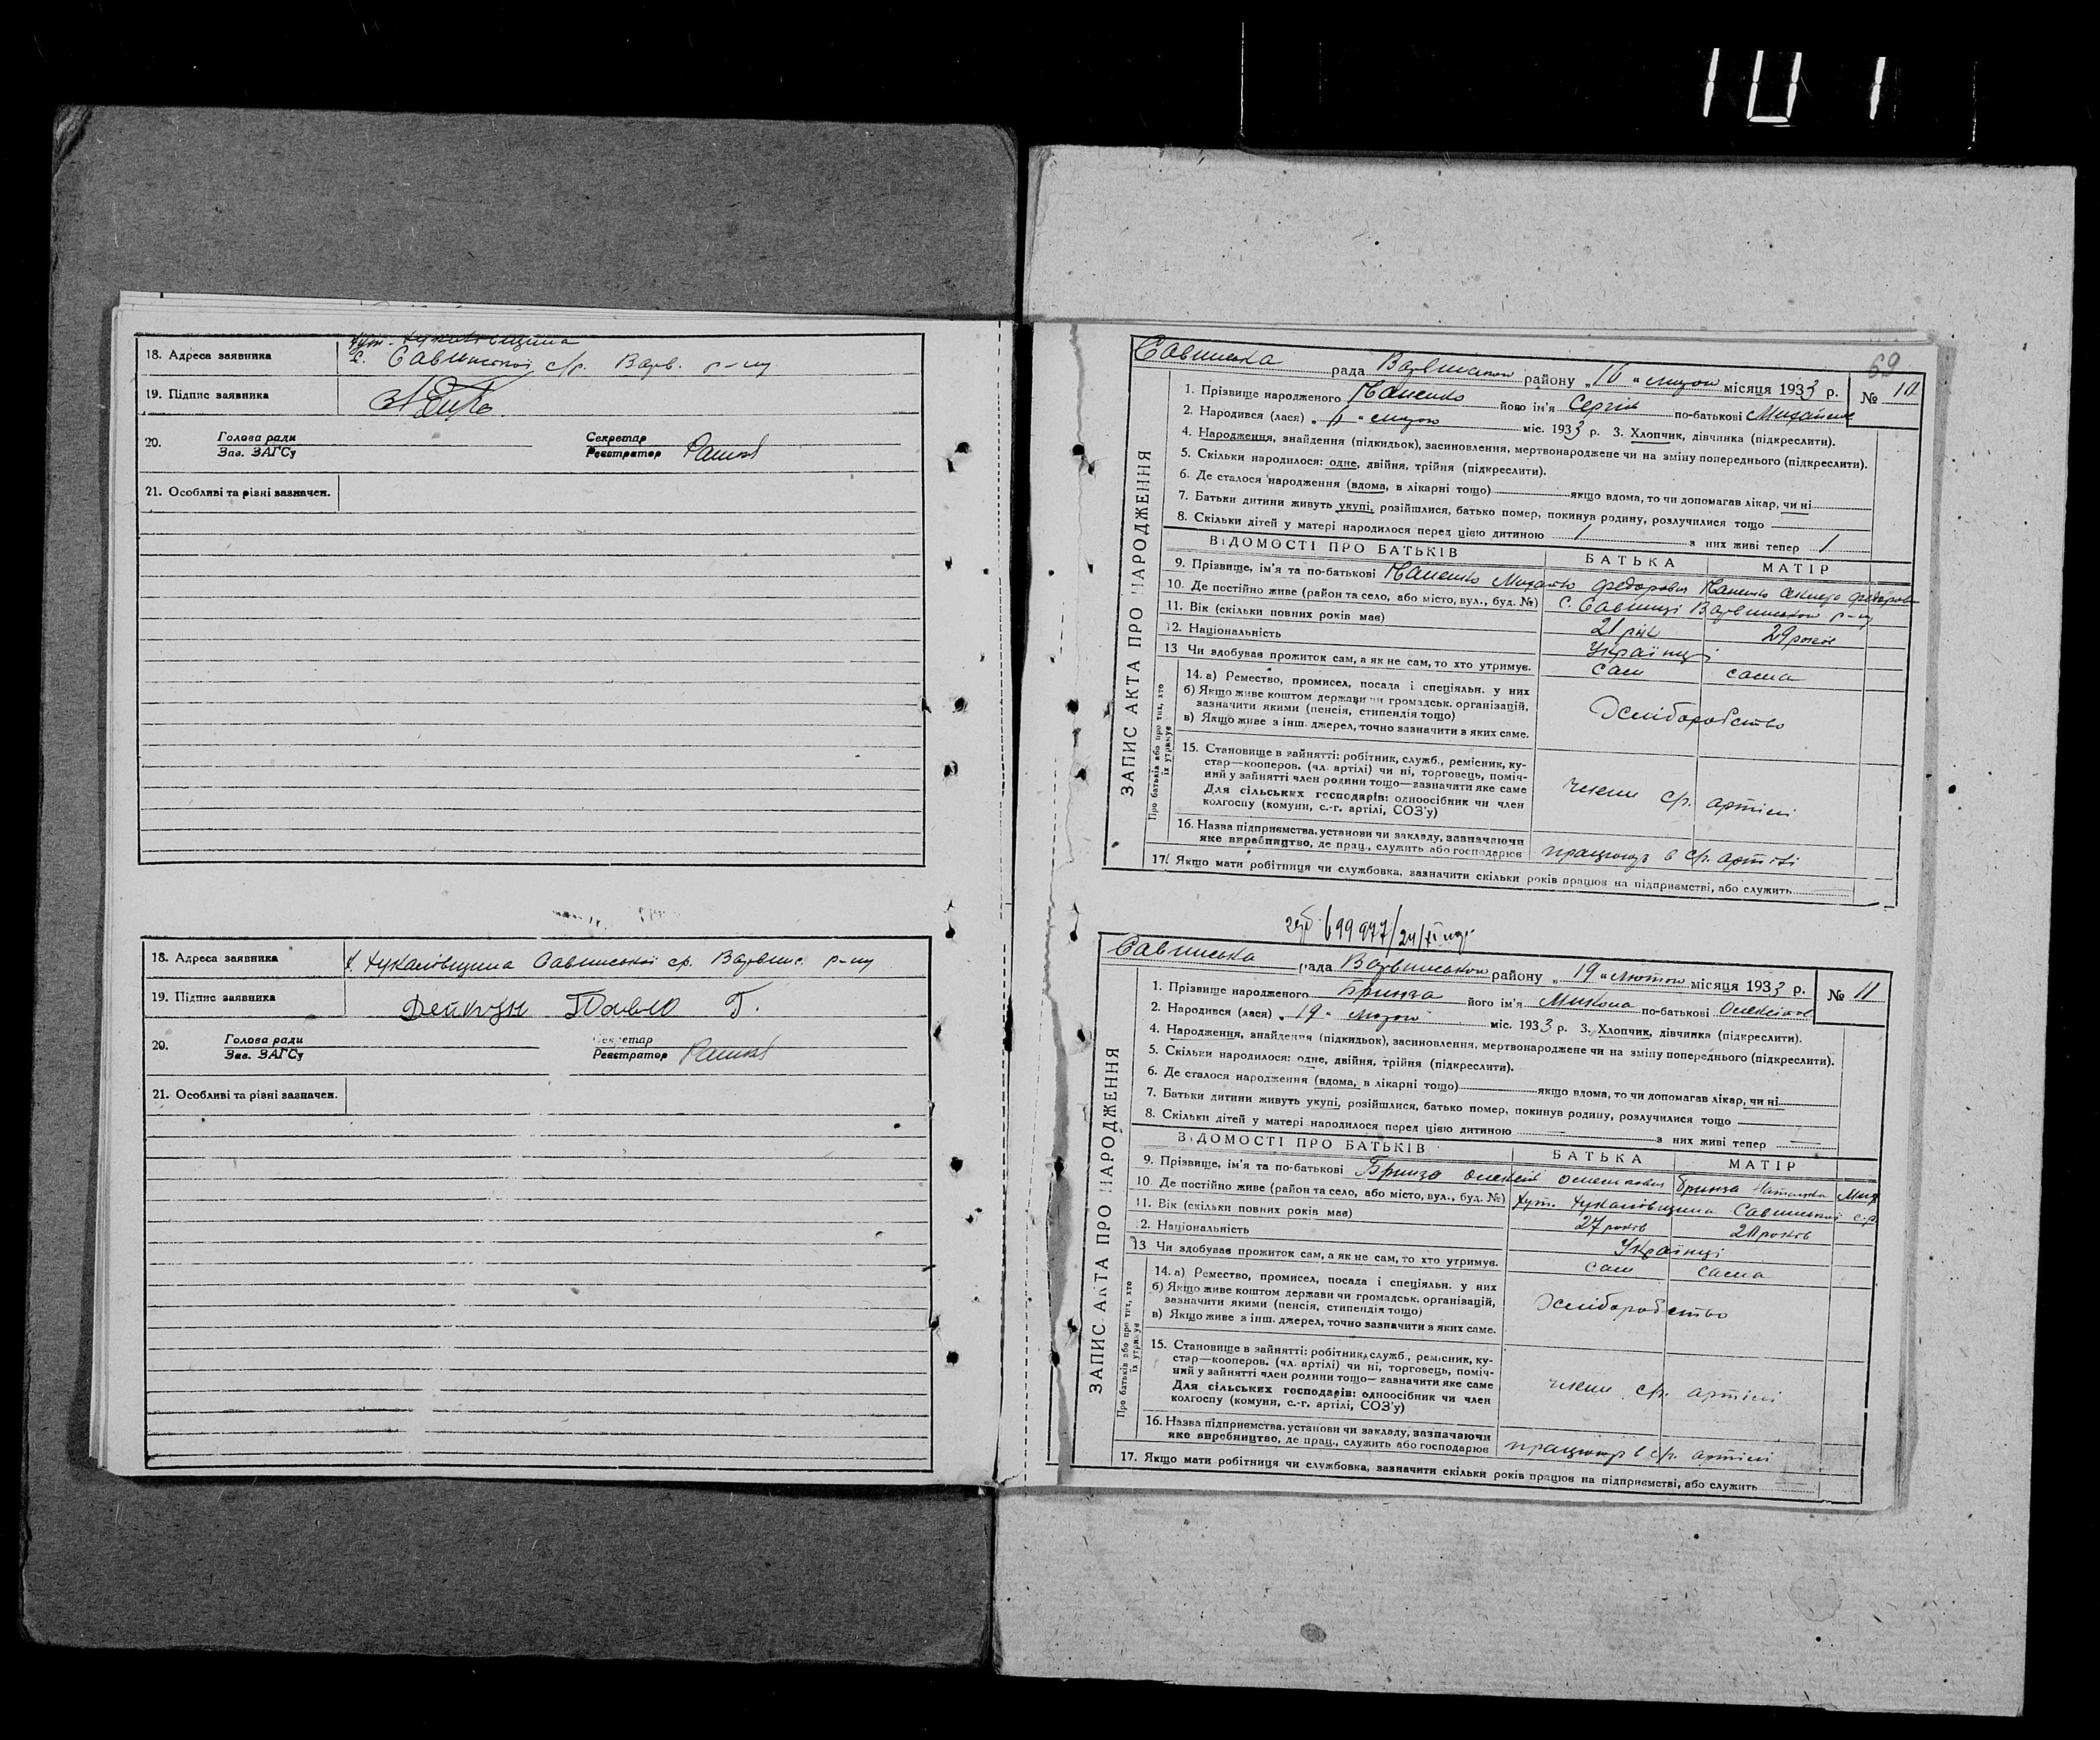 101
18. Адреса заявника
с. Савинської с/р. Варв. р-ну
19. Підпис заявника
20. Голова ради Секретар
Зав. ЗАГСу Реєстратор
21. Особливі та різні зазначен.
18. Адреса заявника Савинської ср. Варвинс. р-ну
19. Підпис заявника Дейкун Павло Г.
20. Голова ради Секретар
Зав. ЗАГСу Реєстратор
21. Особливі та різні зазначен.
69
Савинська рада Варвинського району „16" лютого місяця 1933 р. № 10
ЗАПИС АКТА ПРО НАРОДЖЕННЯ
1. Прізвище народженого його ім'я Сергій по-батькові
2. Народився (лася) лютого міс. 1933 р. 3. Хлопчик, дівчинка (підкреслити).
4. Народження, знайдення (підкидьок), засиновлення, мертвонароджене чи на зміну попереднього (підкреслити).
5. Скільки народилося: одне, двійня, трійня (підкреслити).
6. Де сталося народження (вдома, в лікарні тощо) якщо вдома, то чи допомагав лікар, чи ні
7. Батьки дитини живуть укупі, розійшлися, батько помер, покинув родину, розлучилися тощо
8. Скільки дітей у матері народилося перед цією дитиною 1 з них живі тепер 1
ВІДОМОСТІ ПРО БАТЬКІВ БАТЬКА МАТІР
9. Прізвище, ім'я та по-батькові Михайло Федорович
10. Де постійно живе (район та село, або місто, вул., буд. №) с. Савинці Варвинського р-ну
11. Вік (скільки повних років має) 21 рік 29 років
12. Національність Українці
13 Чи здобував прожиток сам, а як не сам, то хто утримує. сам сама
Про батьків або про тих, хто їх утримує
14. а) Ремество, промисел, посада і спеціяльн. у них
б) Якщо живе коштом держави чи громадськ. організацій,
зазначити якими (пенсія, стипендія тощо) Хліборобство
в) Якщо живе з інш. джерел, точно зазначити з яких саме.
15. Становище в зайнятті: робітник, служб., ремісник, ку-
стар—кооперов. (чл. артілі) чи ні, торговець, поміч-
ний у зайнятті член родини тощо—зазначити яке саме
Для сільських господарів: одноосібник чи член члени с/г. артілі
колгоспу (комуни, с.-г. артілі, СОЗ'у)
16. Назва підприємства, установи чи закладу, зазначаючи
яке виробництво, де прац., служить або господарює працюють в с/г. артілі
17. Якщо мати робітниця чи службовка, зазначити скільки років працює на підприємстві, або служить
Савинська рада Варвинського району „19" лютого місяця 1933 р. № 11
ЗАПИС АКТА ПРО НАРОДЖЕННЯ
1. Прізвище народженого Бринза його ім'я Микола по-батькові
2. Народився (лася) „19" лютого міс. 1933 р. 3. Хлопчик, дівчинка (підкреслити).
4. Народження, знайдення (підкидьок), засиновлення, мертвонароджене чи на зміну попереднього (підкреслити).
5. Скільки народилося: одне, двійня, трійня (підкреслити).
6. Де сталося народження (вдома, в лікарні тощо) якщо вдома, то чи допомагав лікар, чи ні
7. Батьки дитини живуть укупі, розійшлися, батько помер, покинув родину, розлучилися тощо
8. Скільки дітей у матері народилося перед цією дитиною з них живі тепер
ВІДОМОСТІ ПРО БАТЬКІВ БАТЬКА МАТІР
9. Прізвище, ім'я та по-батькові Бринза Олексій Бринза
10. Де постійно живе (район та село, або місто, вул., буд. №) хут. Савинської с.р.
11. Вік (скільки повних років має) 27 років
12. Національність Українці
13 Чи здобував прожиток сам, а як не сам, то хто утримує. сам сама
Про батьків або про тих, хто їх утримує
14. а) Ремество, промисел, посада і спеціяльн. у них
б) Якщо живе коштом держави чи громадськ. організацій,
зазначити якими (пенсія, стипендія тощо) Хліборобство
в) Якщо живе з інш. джерел, точно зазначити з яких саме.
15. Становище в зайнятті: робітник, служб., ремісник, ку-
стар—кооперов. (чл. артілі) чи ні, торговець, поміч-
ний у зайнятті член родини тощо—зазначити яке саме
Для сільських господарів: одноосібник чи член члени с/г. артілі
колгоспу (комуни, с.-г. артілі, СОЗ'у)
16. Назва підприємства, установи чи закладу, зазначаючи
яке виробництво, де прац., служить або господарює працюють в с/г. артілі
17. Якщо мати робітниця чи службовка, зазначити скільки років працює на підприємстві, або служить